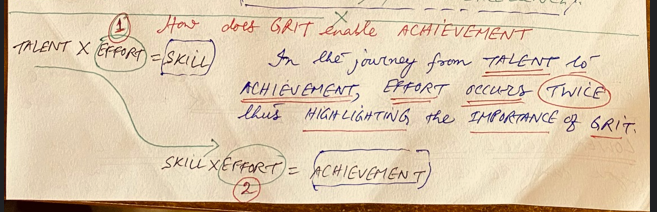 ① How does GRIT enable ACHIEVEMENT
TALENT X EFFORT = SKILL
In the journey from TALENT to
ACHIEVEMENT, EFFORT occurs TWICE
thus HIGHLIGHTING the IMPORTANCE of GRIT.
SKILL X EFFORT = ACHIEVEMENT
②